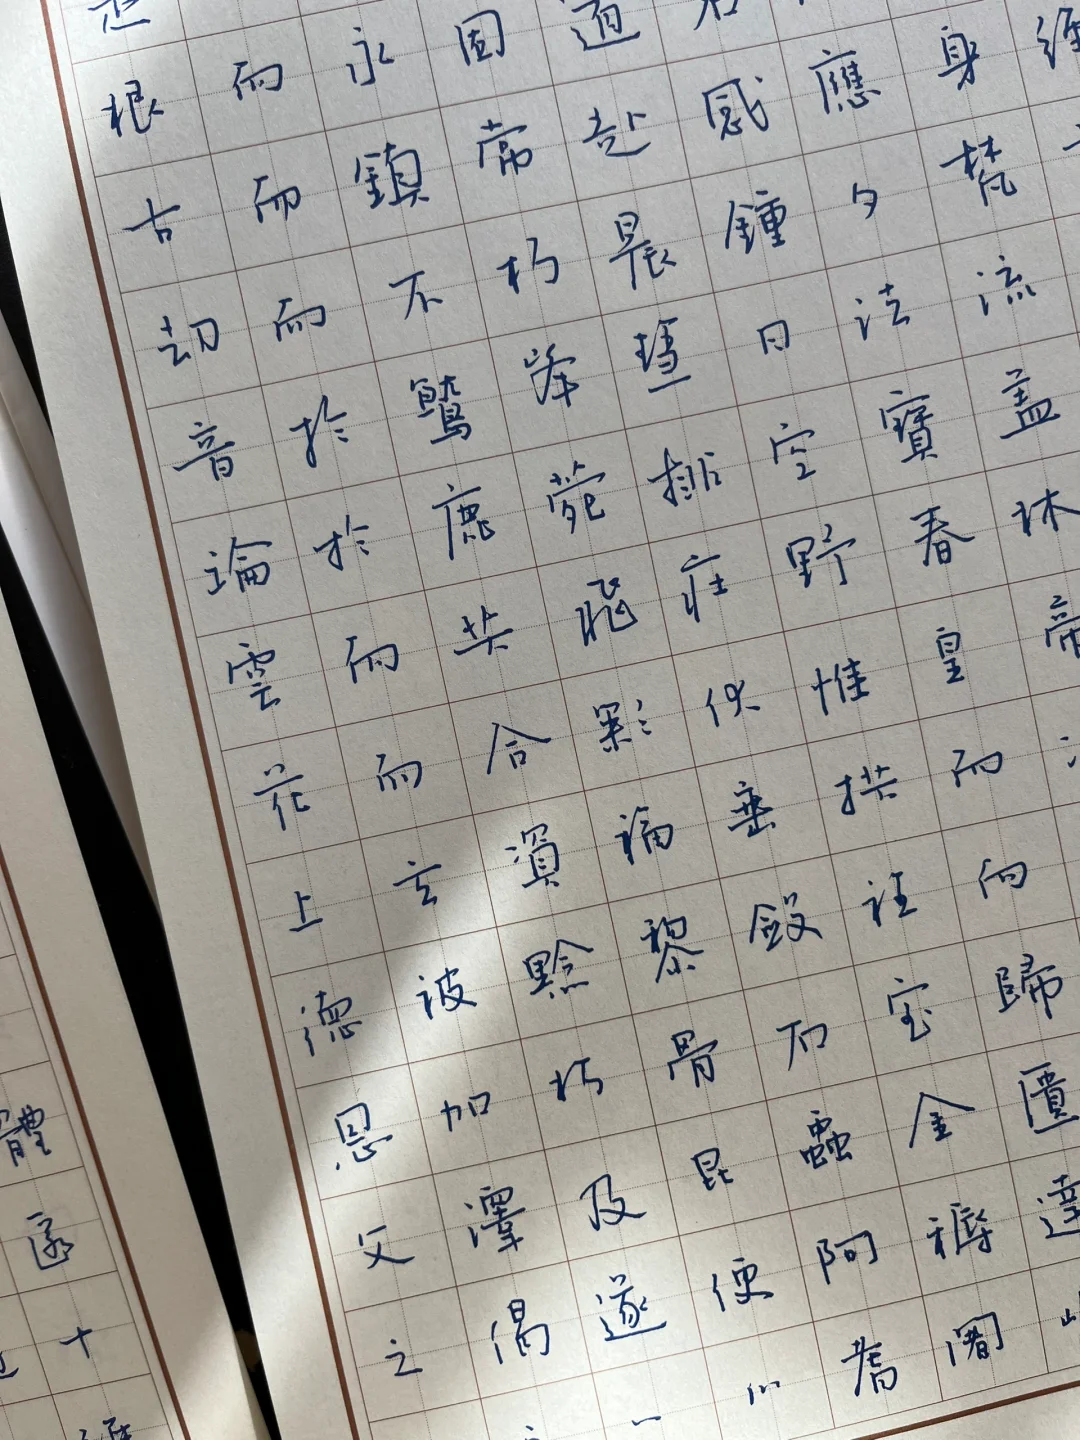 根而永固道
古而鎮常赴感應身經
劫而不朽晨鍾夕梵
音於鷲峯慧日法流
論於鹿菀排空寶蓋
雲而共飛莊野春林
花而合彩伏惟皇帝
上玄資福垂拱而
德被黔黎斂衽而
恩加朽骨石室歸
文澤及昆蟲金匱
之偈遂使阿耨達
耆闍
體
十